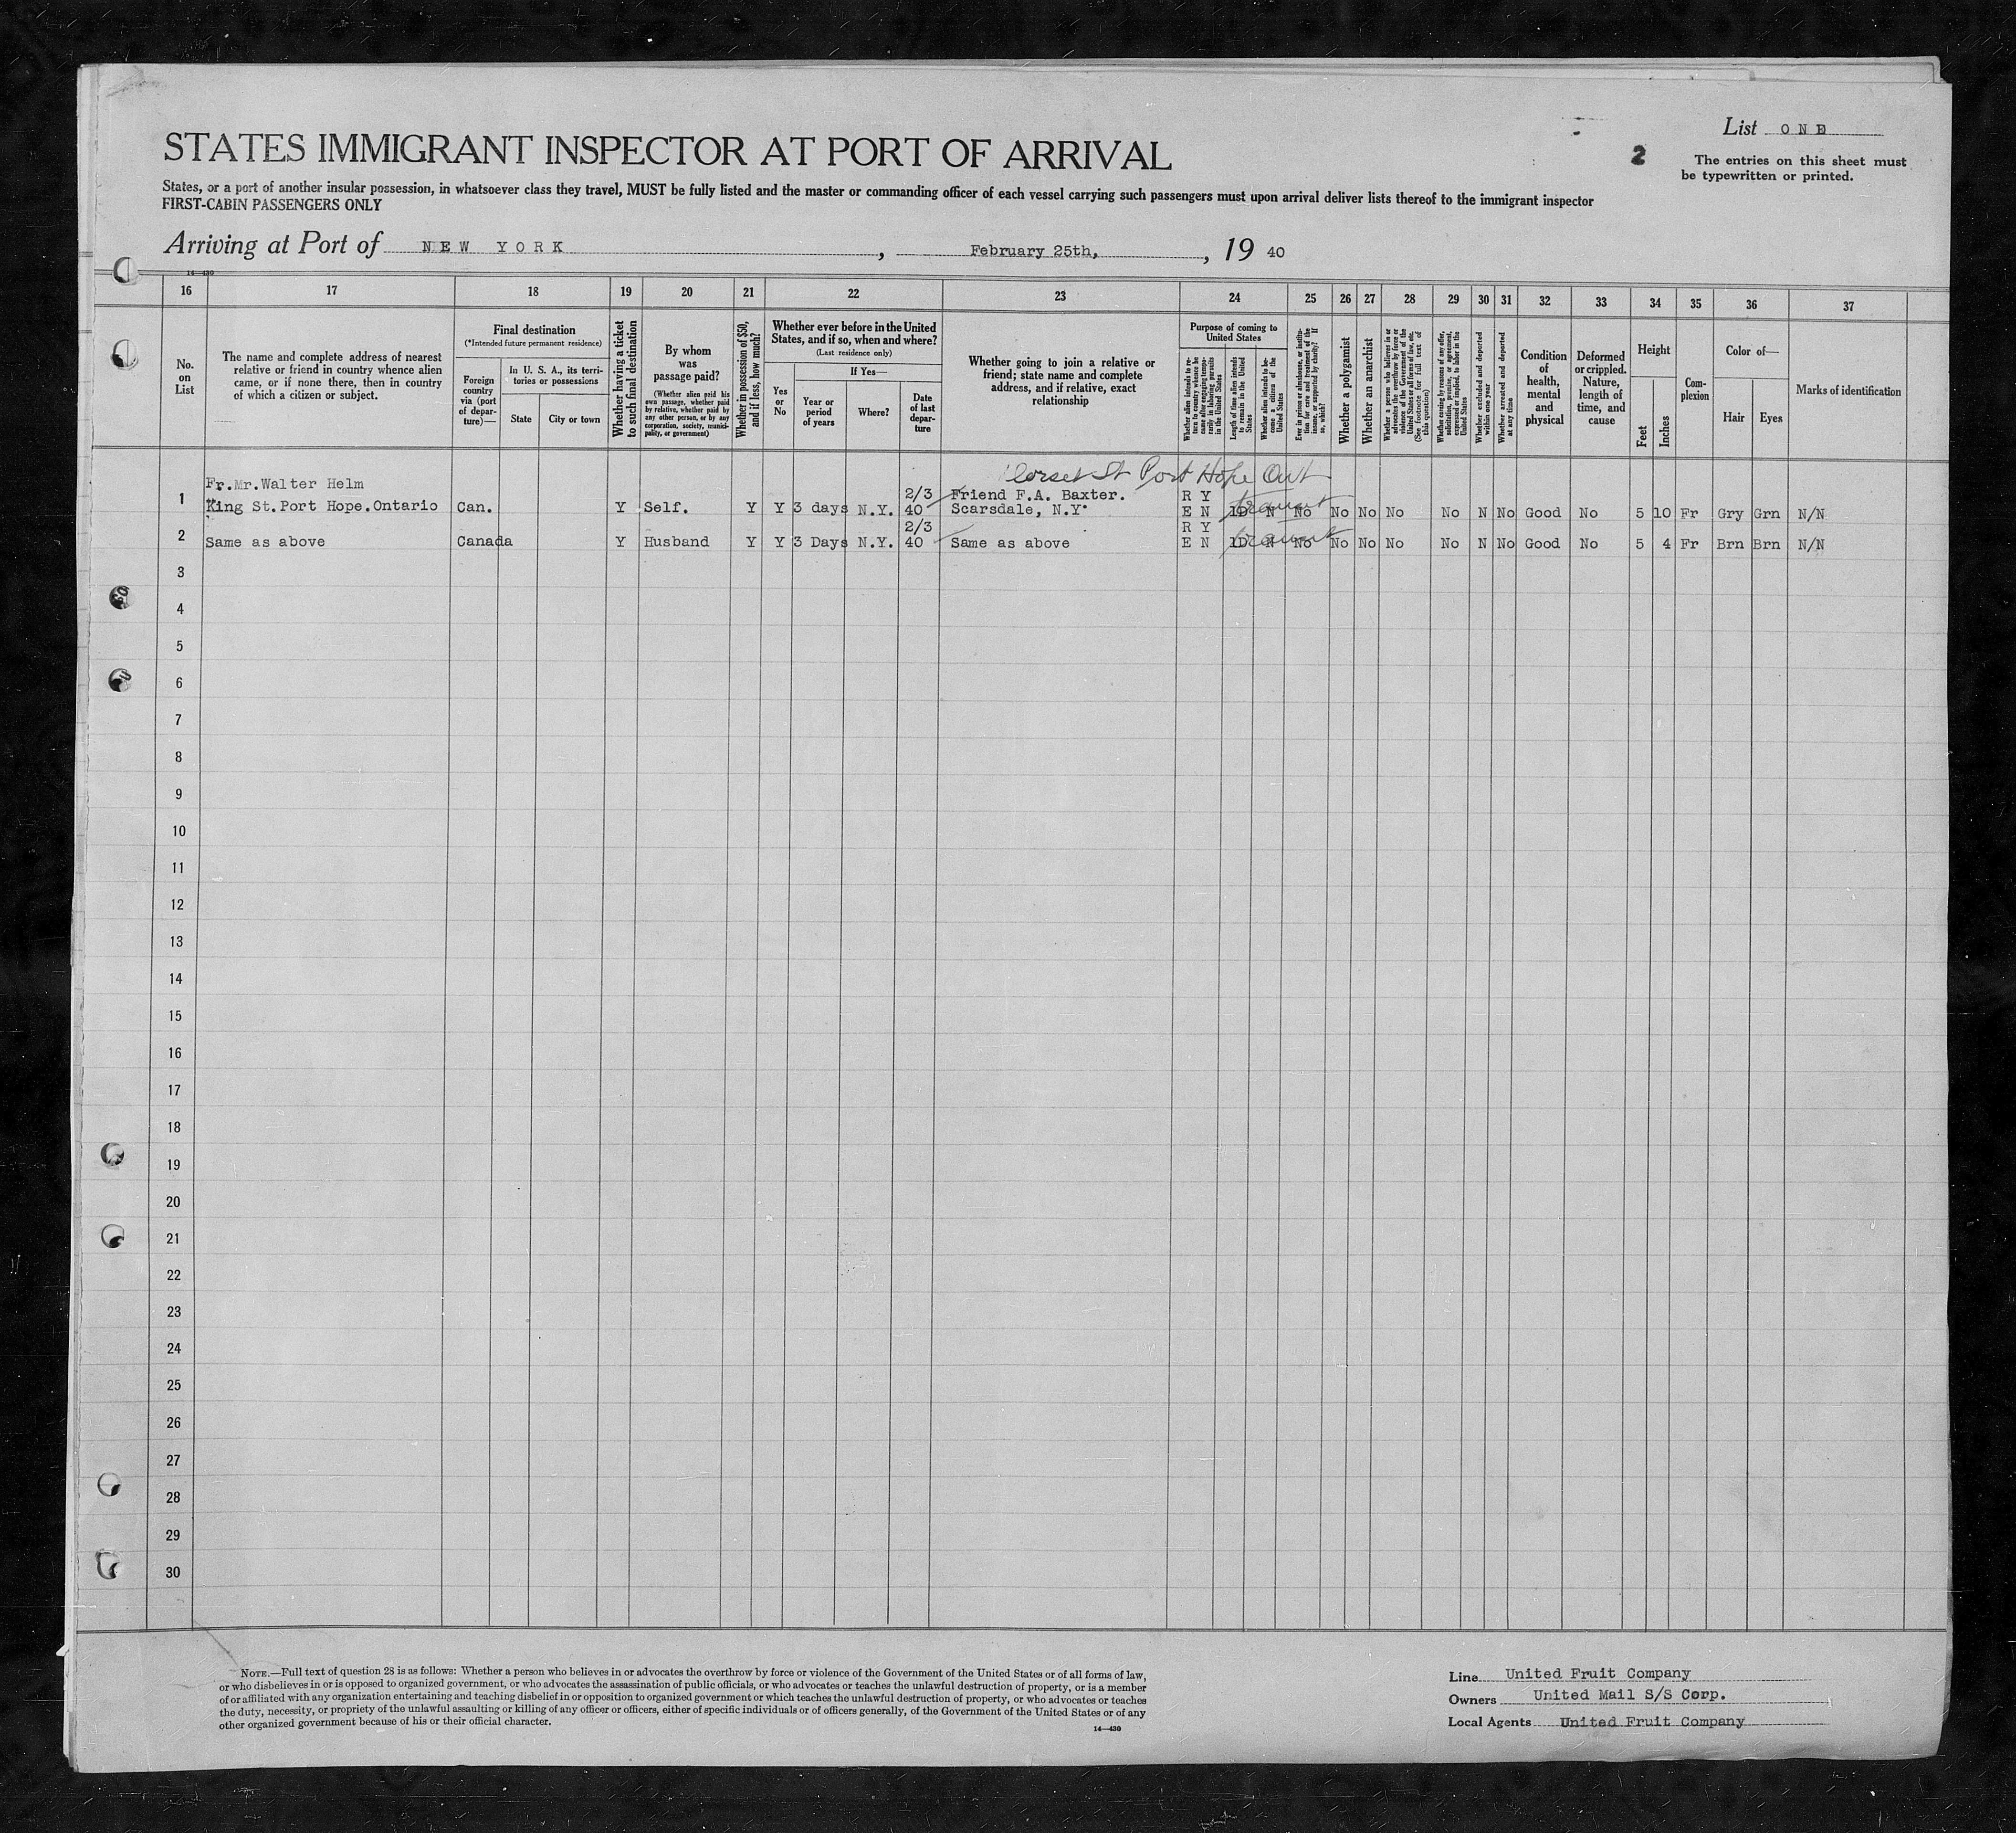 List ONE
2
The entries on this sheet must
be typewritten or printed.
STATES IMMIGRANT INSPECTOR AT PORT OF ARRIVAL
States, or a port of another insular possession, in whatsoever class they travel, MUST be fully listed and the master or commanding officer of each vessel carrying such passengers must upon arrival deliver lists thereof to the immigrant inspector
FIRST-CABIN PASSENGERS ONLY
Arriving at Port of NEW YORK, February 25th, 19 40
14—430
16 17 18 19 20 21 22 23 24 25 26 27 28 29 30 31 32 33 34 35 36 37
No.
on
List
The name and complete address of nearest
relative or friend in country whence alien
came, or if none there, then in country
of which a citizen or subject.
Final destination
(*Intended future permanent residence)
Foreign
country
via (port
of depar-
ture)—
In U. S. A., its terri-
tories or possessions
State
City or town
Whether having a ticket
to such final destination
By whom
was
passage paid?
(Whether alien paid his
own passage, whether paid
by relative, whether paid by
any other person, or by any
corporation, society, munici-
pality, or government)
Whether in possession of $50,
and if less, how much?
Whether ever before in the United
States, and if so, when and where?
(Last residence only)
Yes
or
No
If Yes—
Year or
period
of years
Where?
Date
of last
depar-
ture
Whether going to join a relative or
friend; state name and complete
address, and if relative, exact
relationship
Purpose of coming to
United States
Whether alien intends to re-
turn to country whence he
came after engaging tempo-
rarily in laboring pursuits
in the United States
Length of time alien intends
to remain in the United
States
Whether alien intends to be-
come a citizen of the
United States
Ever in prison or almshouse, or institu-
tion for care and treatment of the
insane, or supported by charity? If
so, which?
Whether a polygamist
Whether an anarchist
Whether a person who believes in or
advocates the overthrow by force or
violence of the Government of the
United States or all forms of law, etc.
(See footnote for full text of
this question)
Whether coming by reasons of any offer,
solicitation, promise, or agreement,
expressed or implied, to labor in the
United States
Whether excluded and deported
within one year
Whether arrested and deported
at any time
Condition
of
health,
mental
and
physical
Deformed
or crippled.
Nature,
length of
time, and
cause
Height
Feet
Inches
Com-
plexion
Color of—
Hair
Eyes
Marks of identification
Dorset St Port Hope Ont
Fr.Mr.Walter Helm
2/3 Friend F.A. Baxter. R Y
1 King St.Port Hope.Ontario Can. Y Self. Y Y 3 days N.Y. 40 Scarsdale, N.Y. E N 1D transit N No No No No No N No Good No 5 10 Fr Gry Grn N/N
2/3 R Y
2 Same as above Canada Y Husband Y Y 3 Days N.Y. 40 Same as above E N 1D transit N No No No No No N No Good No 5 4 Fr Brn Brn N/N
3
4
5
6
7
8
9
10
11
12
13
14
15
16
17
18
19
20
21
22
23
24
25
26
27
28
29
30
NOTE.—Full text of question 28 is as follows: Whether a person who believes in or advocates the overthrow by force or violence of the Government of the United States or of all forms of law,
or who disbelieves in or is opposed to organized government, or who advocates the assassination of public officials, or who advocates or teaches the unlawful destruction of property, or is a member
of or affiliated with any organization entertaining and teaching disbelief in or opposition to organized government or which teaches the unlawful destruction of property, or who advocates or teaches
the duty, necessity, or propriety of the unlawful assaulting or killing of any officer or officers, either of specific individuals or of officers generally, of the Government of the United States or of any
other organized government because of his or their official character.
14—430
Line United Fruit Company
Owners United Mail S/S Corp.
Local Agents United Fruit Company